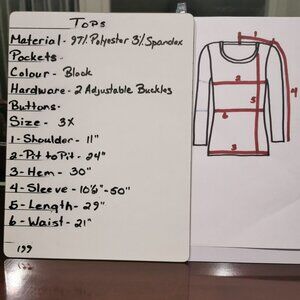 Tops
Material - 97% Polyester 3% Spandex
Pockets -
Colour - Black
Hardware - 2 Adjustable Buckles
Buttons -
Size - 3X
1 - Shoulder - 11"
2 - Pit to Pit - 24"
3 - Hem - 30"
4 - Sleeve - 10'6" - 60"
5 - Length - 29"
6 - Waist - 21"
199
1
2
5
4
6
3